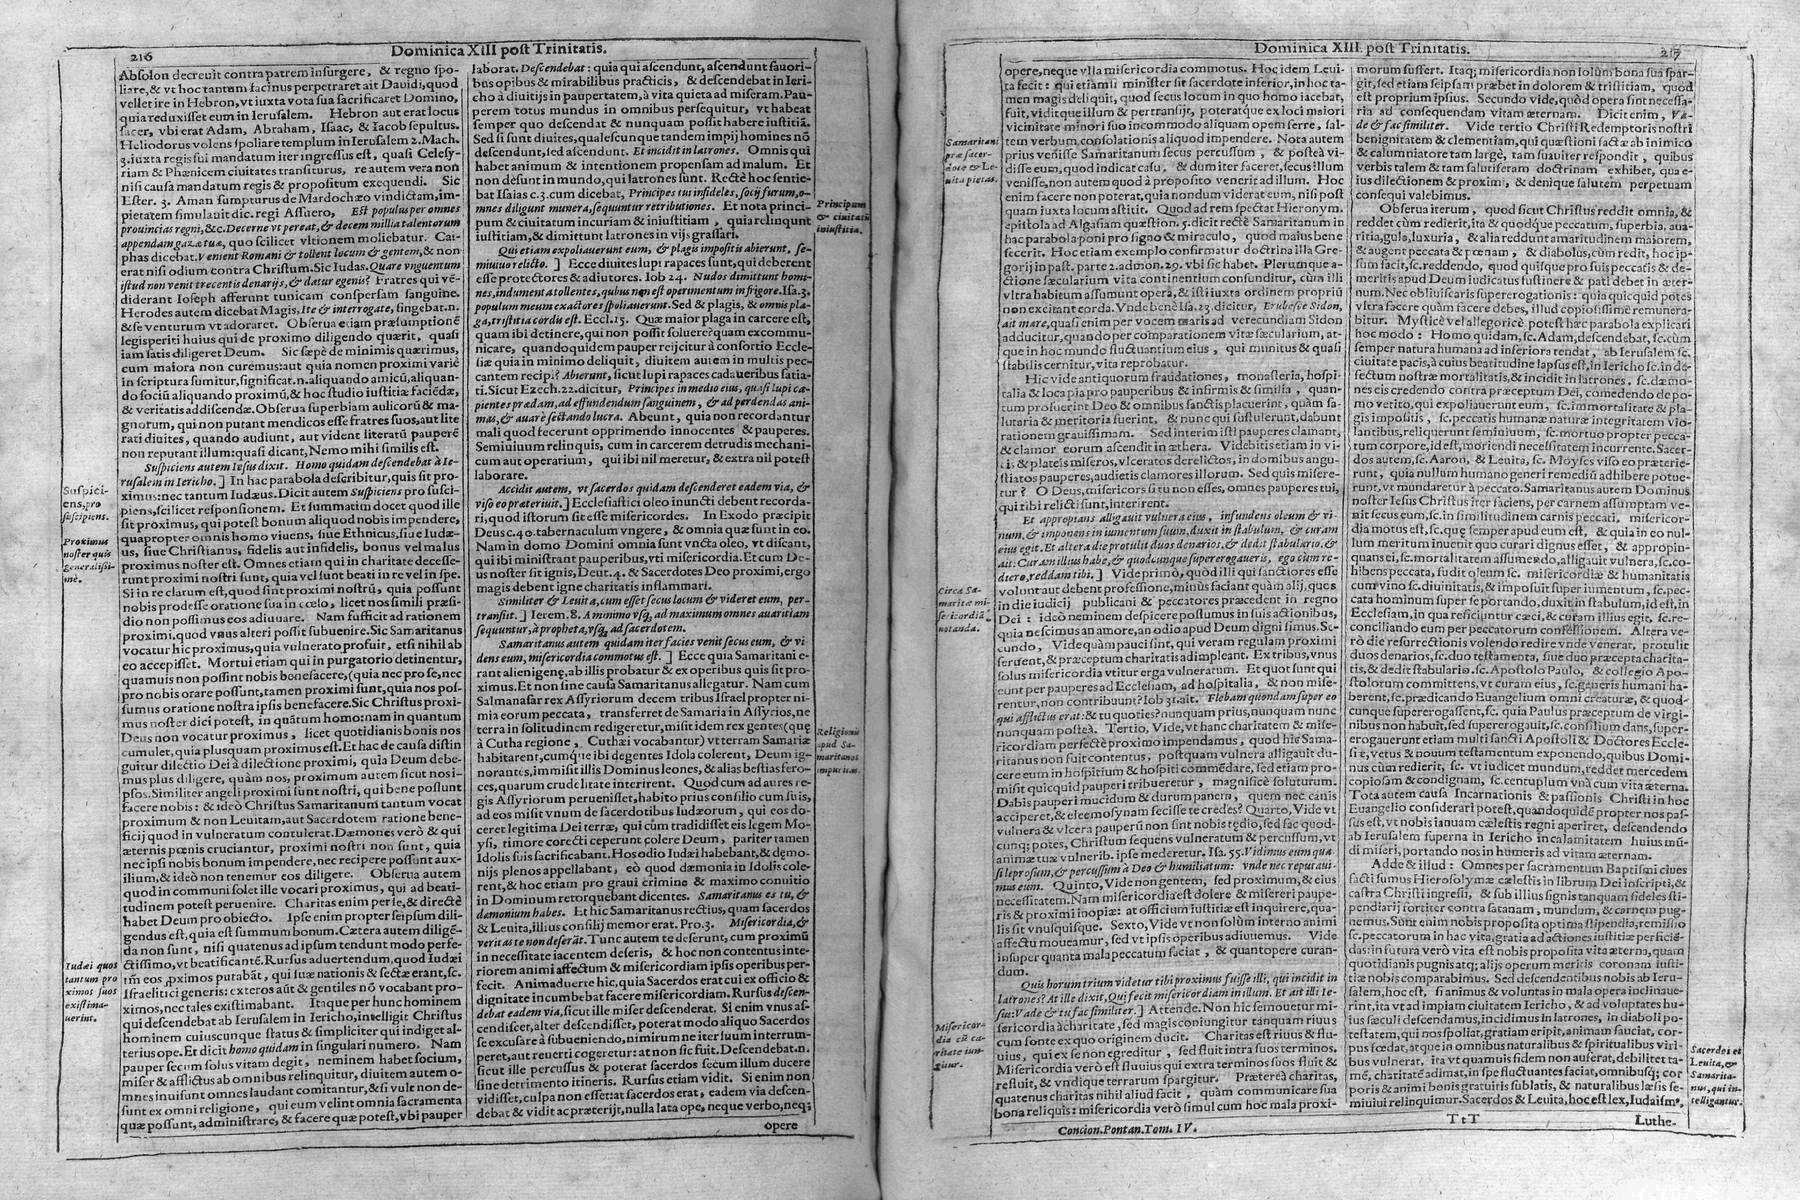 216
Dominica XIII post Trinitatis.
Absolon decreuit contra patrem insurgere, & regno spo-
liare, & vt hoc tantum facinus perpetraret ait Dauidi, quod
vellet ire in Hebron, vt iuxta vota sua sacrificaret Domino,
quia reduxisset eum in Ierusalem. Hebron aut erat locus
sacer, vbi erat Adam, Abraham, Isaac, & Iacob sepultus.
Heliodorus volens spoliare templum in Ierusalem 2. Mach.
3. iuxta regis sui mandatum iter ingressus est, quasi Celesy-
riam & Phænicem ciuitates transiturus, re autem vera non
nisi causa mandatum regis & propositum exequendi. Sic
Ester. 3. Aman sumpturus de Mardochæo vindictam, im-
pietatem simulauit dic. regi Assuero, Est populus per omnes
prouincias regni, &c. Decerne vt pereat, & decem millia talentorum
appendam gazæ tuæ, quo scilicet vltionem moliebatur. Cai-
phas dicebat. Venient Romani & tollent locum & gentem, & non
erat nisi odium contra Christum. Sic Iudas. Quare vnguentum
istud non venit trecentis denarijs, & datur egenis? Fratres qui vē-
diderant Ioseph afferunt tunicam conspersam sanguine.
Herodes autem dicebat Magis, Ite & interrogate, singebat. n.
& se venturum vt adoraret. Obserua etiam præsumptionē
legisperiti huius qui de proximo diligendo quærit, quasi
iam satis diligeret Deum. Sic sæpè de minimis quærimus,
cum maiora non curemus: aut quia nomen proximi variè
in scriptura sumitur, significat. n. aliquando amicū, aliquan-
do sociū aliquando proximū, & hoc studio iustitiæ faciēdæ,
& veritatis addiscendæ. Obserua superbiam aulicorū & ma-
gnorum, qui non putant mendicos esse fratres suos, aut lite
rati diuites, quando audiunt, aut vident literatū pauperē
non reputant illum: quasi dicant, Nemo mihi similis est.
Suspiciens autem Iesus dixit. Homo quidam descendebat à Ie-
rusalem in Iericho. ] In hac parabola describitur, quis sit pro-
ximus: nec tantum Iudæus. Dicit autem Suspiciens pro susci-
piens, scilicet responsionem. Et summatim docet quod ille
sit proximus, qui potest bonum aliquod nobis impendere,
quapropter omnis homo viuens, siue Ethnicus, siue Iudæ-
us, siue Christianus, fidelis aut infidelis, bonus vel malus
proximus noster est. Omnes etiam qui in charitate decesse-
runt proximi nostri sunt, quia vel sunt beati in re vel in spe.
Si in re clarum est, quod sint proximi nostrū, quia possunt
nobis prodesse oratione sua in cœlo, licet nos simili præsi-
dio non possimus eos adiuuare. Nam sufficit ad rationem
proximi, quod vnus alteri possit subuenire. Sic Samaritanus
vocatur hic proximus, quia vulnerato profuit, etsi nihil ab
eo accepisset. Mortui etiam qui in purgatorio detinentur,
quamuis non possint nobis bonefacere, (quia nec pro se, nec
pro nobis orare possunt, tamen proximi sunt, quia nos pos-
sumus oratione nostra ipsis benefacere. Sic Christus proxi-
mus noster dici potest, in quātum homo: nam in quantum
Deus non vocatur proximus, licet quotidianis bonis nos
cumulet, quia plusquam proximus est. Et hac de causa distin
guitur dilectio Dei à dilectione proximi, quia Deum debe-
mus plus diligere, quàm nos, proximum autem sicut nosi-
psos. Similiter angeli proximi sunt nostri, qui bene possunt
facere nobis: & ideò Christus Samaritanum tantum vocat
proximum & non Leuitam, aut Sacerdotem ratione bene-
ficij quod in vulneratum contulerat. Dæmones verò & qui
æternis pœnis cruciantur, proximi nostri non sunt, quia
nec ipsi nobis bonum impendere, nec recipere possunt aux-
ilium, & ideò non tenemur eos diligere. Obserua autem
quod in communi solet ille vocari proximus, qui ad beati-
tudinem potest peruenire. Charitas enim perse, & directè
habet Deum pro obiecto. Ipse enim propter seipsum dili-
gendus est, quia est summum bonum. Cætera autem diligē-
da non sunt, nisi quatenus ad ipsum tendunt modo perfe-
ctissimo, vt beatificantē. Rursus aduertendum, quod Iudæi
tm̄ eos proximos putabāt, qui suæ nationis & sectæ erant, sc.
Israelitici generis: exteros aūt & gentiles nō vocabant pro-
ximos, nec tales existimabant. Itaque per hunc hominem
qui descendebat ab Ierusalem in Iericho, intelligit Christus
hominem cuiuscunque status & simpliciter qui indiget al-
terius ope. Et dicit homo quidam in singulari numero. Nam
pauper secum solus vitam degit, neminem habet socium,
miser & afflictus ab omnibus relinquitur, diuitem autem o-
mnes inuisunt omnes laudant comitantur, & si vult non de-
sunt ex omni religione, qui eum velint omnia sacramenta
quæ possunt, administrare, & facere quæ potest, vbi pauper
Suspici-
ens, pro
suscipiens.
Proximus
noster quis
generalissi-
mè.
Iudæi quos
tantum pro
ximos suos
existima-
uerint.
laborat. Descendebat: quia qui ascendunt, ascendunt fauori-
bus opibus & mirabilibus practicis, & descendebat in Ieri-
cho à diuitijs in paupertatem, à vita quieta ad miseram. Pau-
perem totus mundus in omnibus persequitur, vt habeat
semper quo descendat & nunquam possit habere iustitiā.
Sed si sunt diuites, qualescunque tandem impij homines nō
descendunt, sed ascendunt. Et incidit in latrones. Omnis qui
habet animum & intentionem propensam ad malum. Et
non desunt in mundo, qui latrones sunt. Rectè hoc sentie-
bat Isaias c. 3. cum dicebat, Principes tui infideles, socij furum, o-
mnes diligunt munera, sequuntur retributiones. Et nota princi-
pum & ciuitatum incuriam & iniustitiam, quia relinqunt
iustitiam, & dimittunt latrones in vijs grassari.
Qui etiam expoliauerunt eum, & plagis impositis abierunt, se-
miuiuo relicto. ] Ecce diuites lupi rapaces sunt, qui deberent
esse protectores & adiutores. Iob 24. Nudos dimittunt homi-
nes, indumenta tollentes, quibus non est operimentum in frigore. Isa. 3.
populum meum exactores spoliauerunt. Sed & plagis, & omnis pla-
ga, tristitia cordis est. Eccl. 15. Quæ maior plaga in carcere est,
quam ibi detinere, qui non possit soluere? quam excommu-
nicare, quandoquidem pauper reijcitur à consortio Eccle-
siæ quia in minimo deliquit, diuitem autem in multis pec-
cantem recipi? Abierunt, sicut lupi rapaces cadaueribus satia-
ti. Sicut Ezech. 22. dicitur, Principes in medio eius, quasi lupi ca-
pientes prædam, ad effundendum sanguinem, & ad perdendas ani-
mas, & auarè sectando lucra. Abeunt, quia non recordantur
mali quod fecerunt opprimendo innocentes & pauperes.
Semiuiuum relinquis, cum in carcerem detrudis mechani-
cum aut operarium, qui ibi nil meretur, & extra nil potest
laborare.
Accidit autem, vt sacerdos quidam descenderet eadem via, &
viso eo præteriuit. ] Ecclesiastici oleo inuncti debent recorda-
ri, quod istorum sit esse misericordes. In Exodo præcipit
Deus c. 40. tabernaculum vngere, & omnia quæ sunt in eo.
Nam in domo Domini omnia sunt vncta oleo, vt discant,
qui ibi ministrant pauperibus, vti misericordia. Et cum De-
us noster sit ignis, Deut. 4. & Sacerdotes Deo proximi, ergo
magis debent igne charitatis inflammari.
Similiter & Leuita, cum esset secus locum & videret eum, per-
transiit. ] Ierem. 8. A minimo vsq, ad maximum omnes auaritiam
sequuntur, à propheta, vsq, ad sacerdotem.
Samaritanus autem quidam iter facies venit secus eum, & vi-
dens eum, misericordia commotus est. ] Ecce quia Samaritani e-
rant alienigenę, ab illis probatur & ex operibus quis sit pro-
ximus. Et non sine causa Samaritanus allegatur. Nam cum
Salmanasar rex Assyriorum decem tribus Israel propter ni-
mia eorum peccata, transferret de Samaria in Assyrios, ne
terra in solitudinem redigeretur, misit idem rex gentes (quę
à Cutha regione, Cuthæi vocabantur) vt terram Samariæ
habitarent, cumque ibi degentes Idola colerent, Deum ig-
norantes, immisit illis Dominus leones, & alias bestias fero-
ces, quarum crudelitate interirent. Quod cum ad aures re-
gis Assyriorum peruenisset, habito prius consilio cum suis,
ad eos misit vnum de sacerdotibus Iudæorum, qui eos do-
ceret legitima Dei terræ, qui cùm tradidisset eis legem Mo-
ysi, timore corecti ceperunt colere Deum, pariter tamen
Idolis suis sacrificabant. Hos odio Iudæi habebant, & dęmo-
nijs plenos appellabant, eò quod dæmonia in Idolis cole-
rent, & hoc etiam pro graui crimine & maximo conuitio
in Dominum retorquebant dicentes. Samaritanus es tu, &
dæmonium habes. Et hic Samaritanus rectius, quam sacerdos
& Leuita, illius consilij memor erat. Pro. 3. Misericordia, &
veritas te non deserāt. Tunc autem te deserunt, cum proximū
in necessitate iacentem deseris, & hoc non contentus inte-
riorem animi affectum & misericordiam ipsis operibus per-
fecit. Animaduerte hic, quia Sacerdos erat cui ex officio &
dignitate incumbebat facere misericordiam. Rursus descen-
debat eadem via, sicut ille miser descenderat. Si enim vnus as-
cendisset, alter descendisset, poterat modo aliquo Sacerdos
se excusare à subueniendo, nimirum ne iter suum interrum-
peret, aut reuerti cogeretur: at non sic fuit. Descendebat. n.
sicut ille percussus & poterat sacerdos secum illum ducere
sine detrimento itineris. Rursus etiam vidit. Si enim non
vidisset, culpa non esset: at sacerdos erat, eadem via descen-
debat & vidit ac præterijt, nulla lata ope, neque verbo, neq;
opere
Principum
& ciuitatū
iniustitia.
Religionis
apud Sa-
maritanos
impuritas.
Dominica XIII. post Trinitatis.
217
opere, neque vlla misericordia commotus. Hoc idem Leui-
ta fecit: qui etiamsi minister sit sacerdote inferior, in hoc ta-
men magis deliquit, quod secus locum in quo homo iacebat,
fuit, viditque illum & pertransijt, poteratque ex loci maiori
vicinitate minori suo incommodo aliquam opem ferre, sal-
tem verbum consolationis aliquod impendere. Nota autem
prius venisse Samaritanum secus percussum, & posteà vi-
disse eum, quod indicat casu, & dum iter faceret, secus illum
venisse, non autem quod à proposito venerit ad illum. Hoc
enim facere non poterat, quia nondum viderat eum, nisi post
quam iuxta locum astitit. Quod ad rem spectat Hieronym.
epistola ad Algasiam quæstion. 5. dicit rectè Samaritanum in
hac parabola poni pro signo & miraculo, quod malus bene
fecerit. Hoc etiam exemplo confirmatur doctrina illa Gre-
gorij in past. parte 2. admon. 29. vbi sic habet. Plerumque a-
ctione sæcularium vita continentium confunditur, cùm illi
vltra habitum assumunt opera, & isti iuxta ordinem propriū
non excitant corda. Vnde benè Isa. 23. dicitur, Erubesce Sidon,
ait mare, quasi enim per vocem maris ad verecundiam Sidon
adducitur, quando per comparationem vitæ sæcularium, at-
que in hoc mundo fluctuantium eius, qui munitus & quasi
stabilis cernitur, vita reprobatur.
Hic vide antiquorum fraudationes, monasteria, hospi-
talia & loca pia pro pauperibus & infirmis & similia, quan-
tum profuerint Deo & omnibus sanctis placuerint, quàm sa-
lutaria & meritoria fuerint, & nunc qui sustulerunt, dabunt
rationem grauissimam. Sed interim isti pauperes clamant,
& clamor eorum ascendit in æthera. Videbitis etiam in vi-
cis, & plateis miseros, vlceratos derelictos, in domibus angu-
stiatos pauperes, audietis clamores illorum. Sed quis misere-
tur? O Deus, misericors si tu non esses, omnes pauperes tui,
qui tibi relicti sunt, interirent.
Et appropians alligauit vulnera eius, infundens oleum & vi-
num, & imponens in iumentum suum, duxit in stabulum, & curam
eius egit. Et altera die protulit duos denarios, & dedit stabulario, &
ait: Curam illius habe, & quodcunque supererogaueris, ego cùm re-
diero, reddam tibi. ] Vide primò, quòd illi qui sanctiores esse
volunt aut debent professione, minùs faciant quàm alij, quos
in die iudicij publicani & peccatores præcedent in regno
Dei: ideò neminem despicere possumus in suis actionibus,
quia nescimus an amore, an odio apud Deum digni simus. Se-
cundo, Vide quàm pauci sunt, qui veram regulam proximi
seruent, & præceptum charitatis adimpleant. Ex tribus, vnus
solus misericordia vtitur erga vulneratum. Et quot sunt qui
eunt per pauperes ad Ecclesiam, ad hospitalia, & non mise-
rentur, non contribuunt? Iob 31. ait. Flebam quondam super eo
qui afflictus erat: & tu quoties? nunquam prius, nunquam nunc
nunquam posteà. Tertio, Vide, vt hanc charitatem & mise-
ricordiam perfectè proximo impendamus, quod hic Sama-
ritanus non fuit contentus, postquam vulnera alligauit du-
cere eum in hospitium & hospiti commēdare, sed etiam pro-
misit quicquid pauperi tribueretur, magnificè soluturum.
Dabis pauperi mucidum & durum panem, quem nec canis
acciperet, & eleemosynam fecisse te credes? Quarto, Vide vt
vulnera & vlcera pauperū non sint nobis tędio, sed fac quod-
cunq; potes, Christum sequens vulneratum & percussum, vt
animæ tuæ vulnerib. ipse mederetur. Isa. 55. Vidimus eum qua-
si leprosum, & percussum à Deo & humiliatum: vnde nec reputaui-
mus eum. Quinto, Vide non gentem, sed proximum, & eius
necessitatem. Nam misericordia est dolere & misereri paupe-
ris & proximi inopiæ: at officium iustitiæ est inquirere, qua-
lis sit vnusquisque. Sexto, Vide vt non solùm interno animi
affectu moueamur, sed vt ipsis operibus adiunemus. Vide
insuper quanta mala peccatum faciat, & quantopere curan-
dum.
Quis horum trium videtur tibi proximus fuisse illi, qui incidit in
latrones? At ille dixit, Qui fecit misericordiam in illum. Et ait illi Ie-
sus: Vade & tu fac similiter. ] Attende. Non hic semouetur mi-
sericordia à charitate, sed magis coniungitur tanquam riuus
cum fonte ex quo originem ducit. Charitas est riuus & flu-
uius, qui ex se non egreditur, sed fluit intra suos terminos.
Misericordia verò est fluuius qui extra terminos suos fluit &
refluit, & vndique terrarum spargitur. Prætereà charitas,
quatenus charitas nihil aliud facit, quàm communicare sua
bona reliquis: misericordia verò simul cum hoc mala proxi-
Samaritani
præ sacer-
dote & Le-
uita pietas.
Circa Sa-
maritæ mi-
sericordiā
notanda.
Misericor-
dia cū ca-
ritate iun-
gitur.
morum suffert. Itaq; misericordia non solùm bona sua spar-
git, sed etiam seipsam præbet in dolorem & tristitiam, quod
est proprium ipsius. Secundo vide, quòd opera sint necessa-
ria ad consequendam vitam æternam. Dicit enim, Va-
de & fac similiter. Vide tertio Christi Redemptoris nostri
benignitatem & clementiam, qui quæstioni factæ ab inimico
& calumniatore tam largè, tam suauiter respondit, quibus
verbis talem & tam salutiferam doctrinam exhiber, qua e-
ius dilectionem & proximi, & denique salutem perpetuam
consequi valebimus.
Obserua iterum, quod sicut Christus reddit omnia, &
reddet cùm redierit, ita & quodque peccatum, superbia, aua-
ritia, gula, luxuria, & alia reddunt amaritudinem maiorem,
& augent peccata & pœnam, & diabolus, cum redit, hoc ip-
sum facit, sc. reddendo, quod quisque pro suis peccatis & de-
meritis apud Deum iudicatus sustinere & pati debet in æter-
num. Nec obliuiscaris supererogationis: quia quicquid potes
vltra facere quàm facere debes, illud copiosissimè remunera-
bitur. Mysticè vel allegoricè potest hæc parabola explicari
hoc modo: Homo quidam, sc. Adam, descendebat, sc. cùm
semper natura humana ad inferiora tendat, ab Ierusalem sc.
ciuitate pacis, à cuius beatitudine lapsus est, in Iericho sc. in de-
fectum nostræ mortalitatis, & incidit in latrones, sc. dæmo-
nes eis credendo contra præceptum Dei, comedendo de po-
mo vetito, qui expoliauerunt eum, sc. immortalitate & pla-
gis impositis, sc. peccatis humanæ naturæ integritatem vio-
lantibus, reliquerunt semiuiuum, sc. mortuo propter pecca-
tum corpore, id est, moriendi necessitatem incurrente. Sacer-
dos autem, sc. Aaron, & Leuita, sc. Moyses viso eo præterie-
runt, quia nullum humano generi remediū adhibere potue-
runt, vt munderatur à peccato. Samaritanus autem Dominus
noster Iesus Christus iter faciens, per carnem assumptam ve-
nit secus eum, sc. in similitudinem carnis peccati, misericor-
dia motus est, sc. quę semper apud eum est, & quia in eo nul-
lum meritum inuenit quo curari dignus esset, & appropin-
quans ei, sc. mortalitatem assumendo, alligauit vulnera, sc. co-
hibens peccata, fudit oleum sc. misericordiæ & humanitatis
cum vino sc. diuinitatis, & imposuit super iumentum, sc. pec-
cata hominum super se portando, duxit in stabulum, id est, in
Ecclesiam, in qua reficiuntur cæci, & curam illius egit, sc. re-
conciliando eum per peccatorum confessionem. Altera ve-
rò die resurrectionis volendo redire vnde venerat, protulit
duos denarios, sc. duo testamenta, siue duo præcepta charita-
tis, & dedit stabulario. sc. Apostolo Paulo, & collegio Apo-
stolorum committens, vt curam eius, sc. generis humani ha-
berent, sc. prædicando Euangelium omni creaturæ, & quod-
cunque supererogassent, sc. quia Paulus præceptum de virgi-
nibus non habuit, sed supererogauit, sc. consilium dans, super-
erogauerunt etiam multi sancti Apostoli & Doctores Eccle-
siæ, vetus & nouum testamentum exponendo, quibus Domi-
nus cùm redierit, sc. vt iudicet mundum, reddet mercedem
copiosam & condignam, sc. centuplum vnà cum vita æterna.
Tota autem causa Incarnationis & passionis Christi in hoc
Euangelio considerari potest, quandoquidē propter nos pas-
sus est, vt nobis ianuam cælestis regni aperiret, descendendo
ab Ierusalem superna in Iericho in calamitatem huius mū-
di miseri, portando nos in humeris ad vitam æternam.
Adde & illud: Omnes per sacramentum Baptismi ciues
facti sumus Hierosolymæ cælestis in librum Dei inscripti, &
castra Christi ingressi, & sub illius signis tanquam fideles sti-
pendiarij fortiter contra satanam, mundum, & carnem pug-
nemus. Sunt enim nobis proposita optima stipendia, remissio
sc. peccatorum in hac vita, gratia ad actiones iustitiæ perficiē-
das: in futura verò vita est nobis proposita vita æterna, quam
quotidianis pugnis atq; alijs operum meritis coronam iusti-
tiæ nobis comparabimus. Sed descendentibus nobis ab Ieru-
salem, hoc est, si animus & voluntas in mala opera inclinaue-
rint, ita vt ad impiam ciuitatem Iericho, & ad voluptates hu-
ius sæculi descendamus, incidimus in latrones, in diaboli po-
testatem, qui nos spoliat, gratiam eripit, animam sauciat, cor-
pus fœdat, atque in omnibus naturalibus & spiritualibus viri-
bus vulnerat. ita vt quamuis fidem non auferat, debilitet ta-
mē, charitatē adimat, in spe fluctuantes faciat, omnibusq; cor
poris & animi bonis gratuitis sublatis, & naturalibus læsis se-
miuiui relinquimur. Sacerdos & Leuita, hoc est lex, Iudaismꝰ,
Sacerdos et
Leuita, &
Samarita-
nus, qui in-
telligantur.
Concion. Pontan. Tom. IV.
TtT
Luthe-